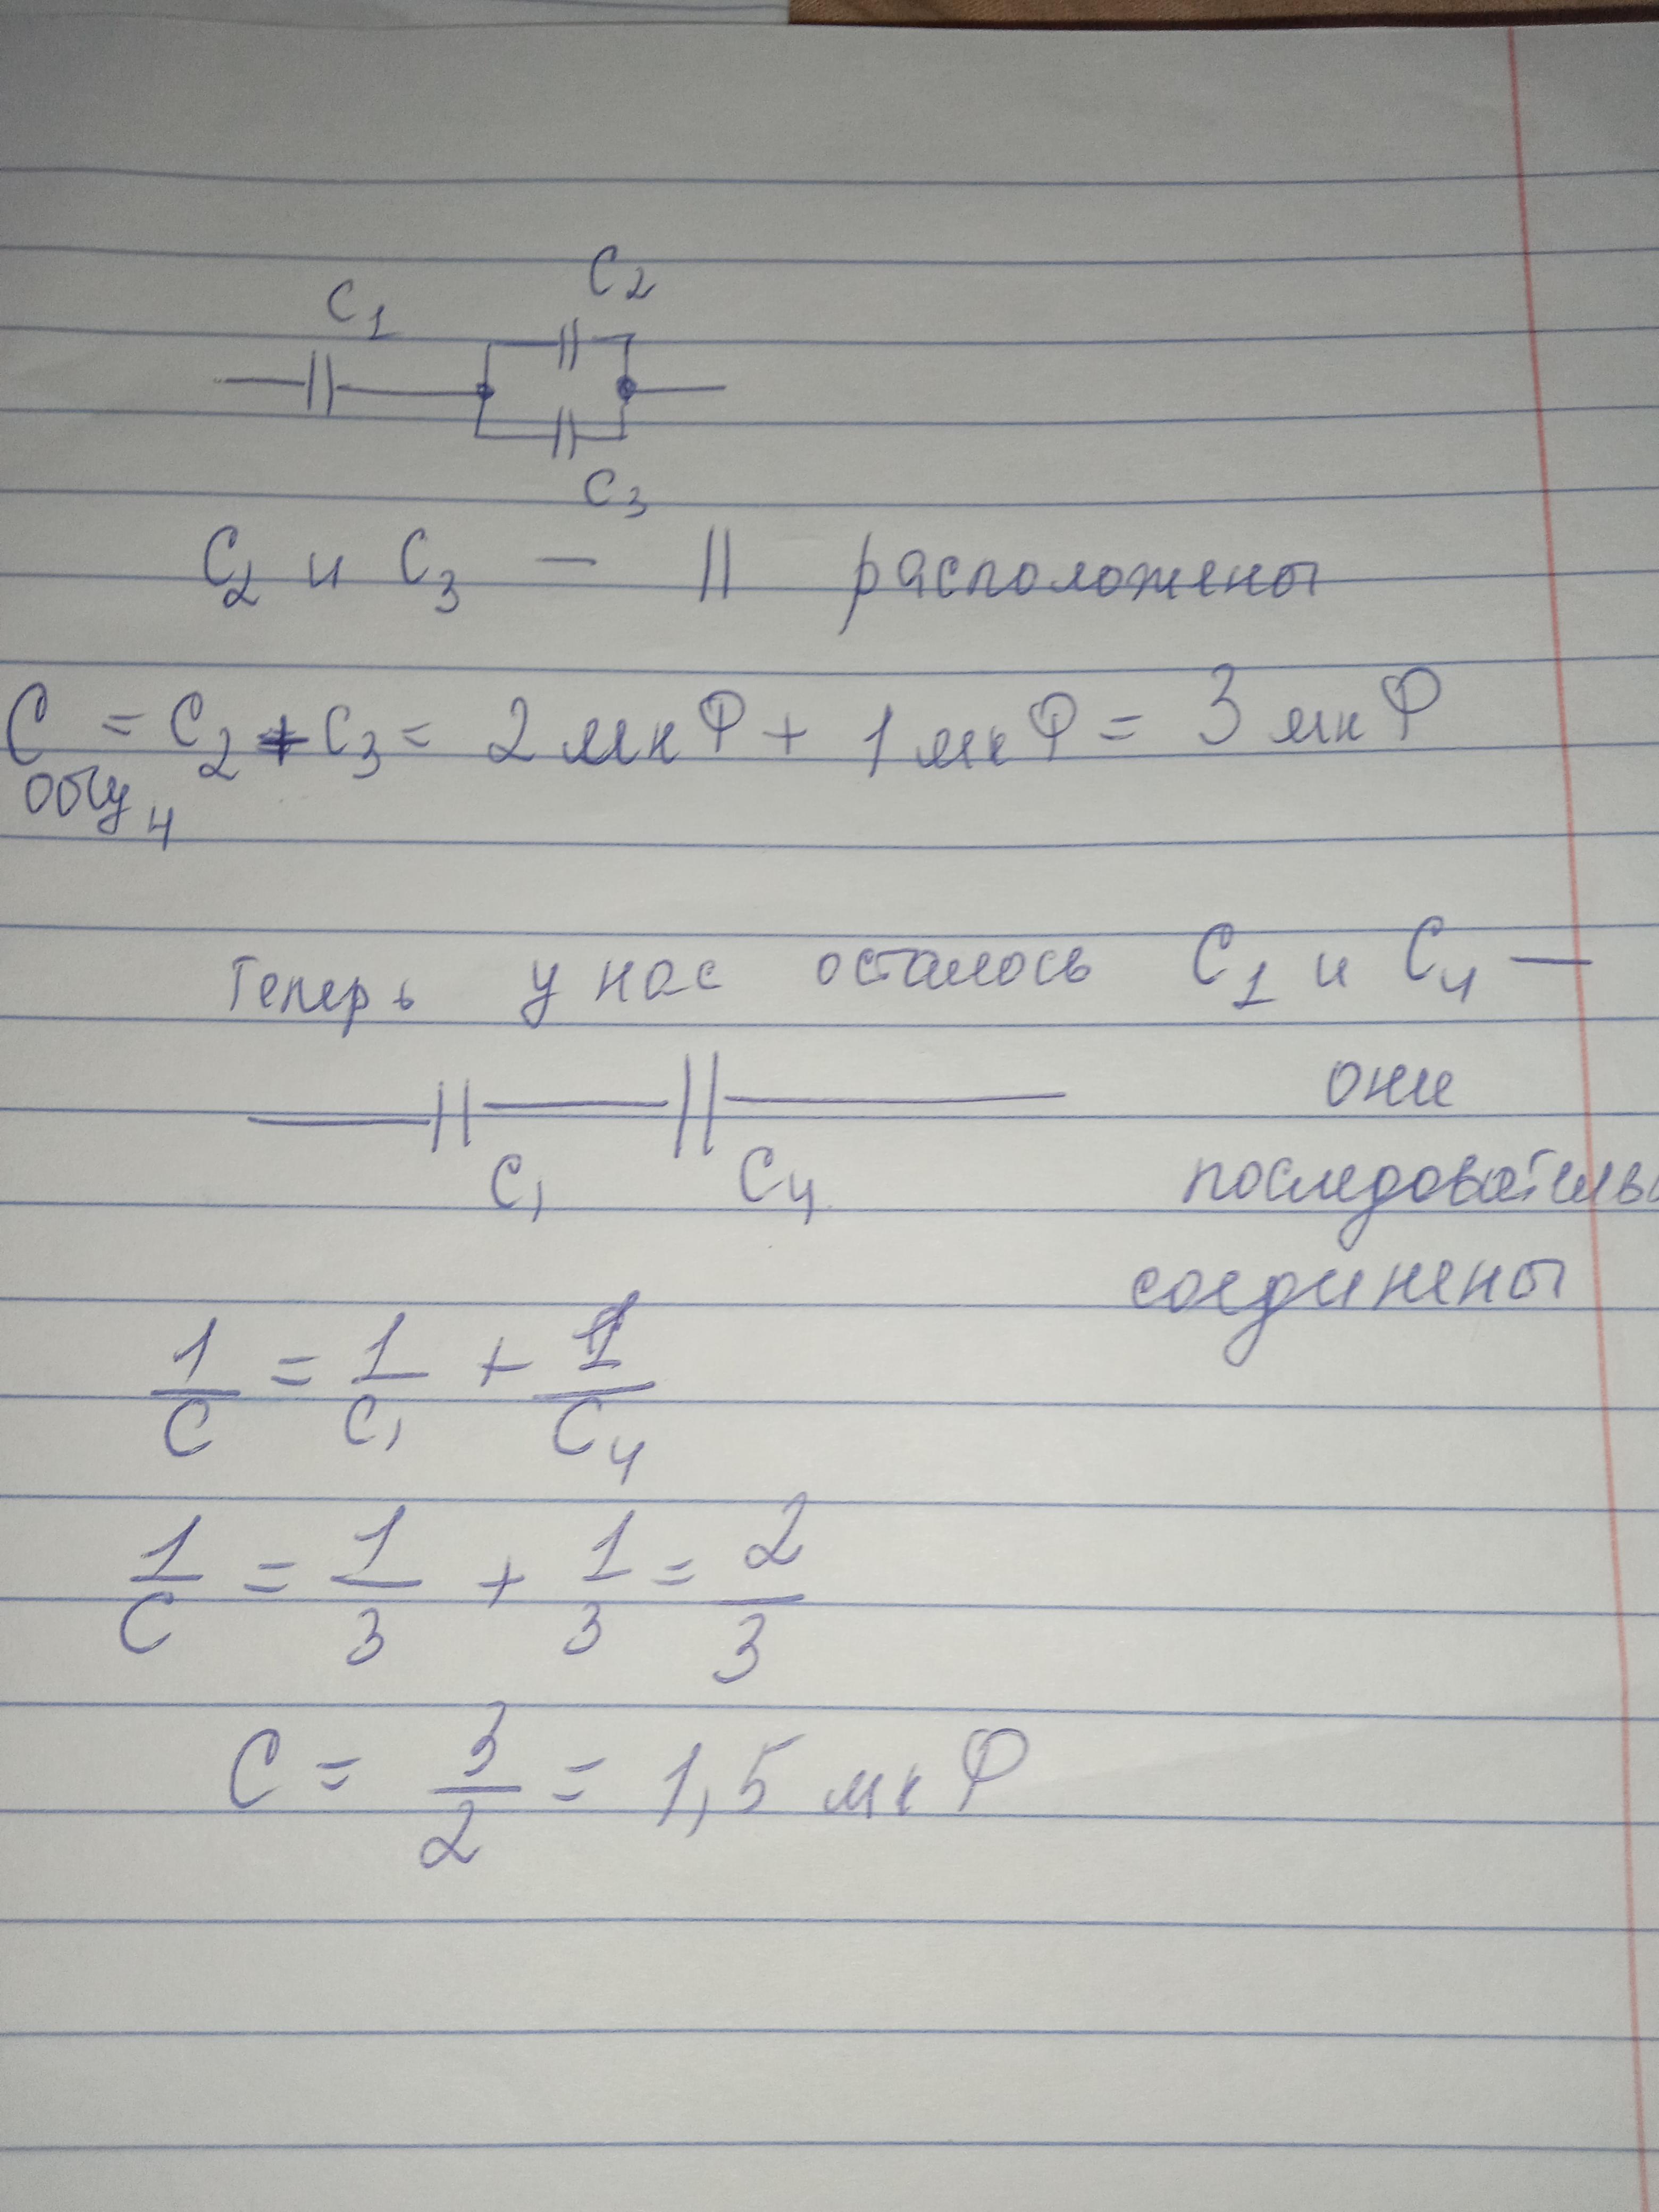 C1
C2
C3
C2 и C3 – || расположены
C общ4 = C2 + C3 = 2 мкФ + 1 мкФ = 3 мкФ
Теперь у нас осталось C1 и C4 —
они
C1 C4
последовательн
соединены
1/C = 1/C1 + 1/C4
1/C = 1/3 + 1/3 = 2/3
C = 3/2 = 1,5 мкФ